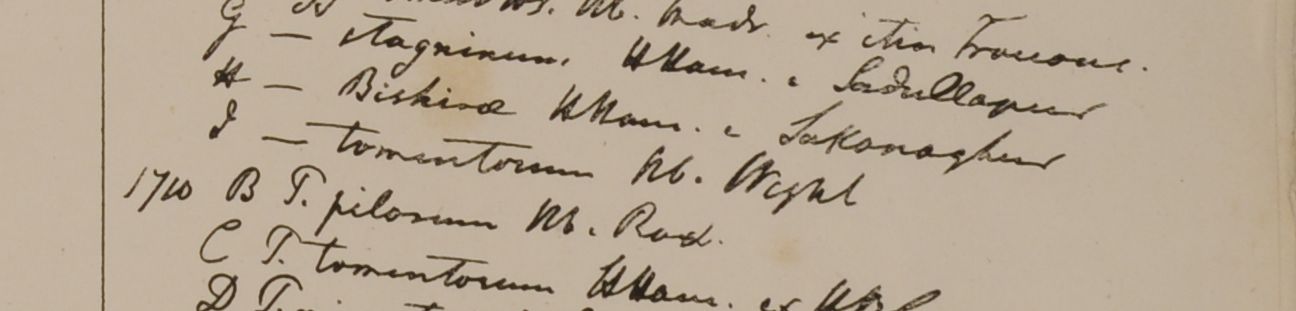 G — Hb. Madr. ex itin
— stagninum. HHam. e Sadullapur
H — Biskirae HHam. e Sakanaghur
I — tomentosum Hb. Wight
1710 B T. pilosum Hb. Rox.
C T. tomentosum HHam. ex
D T.